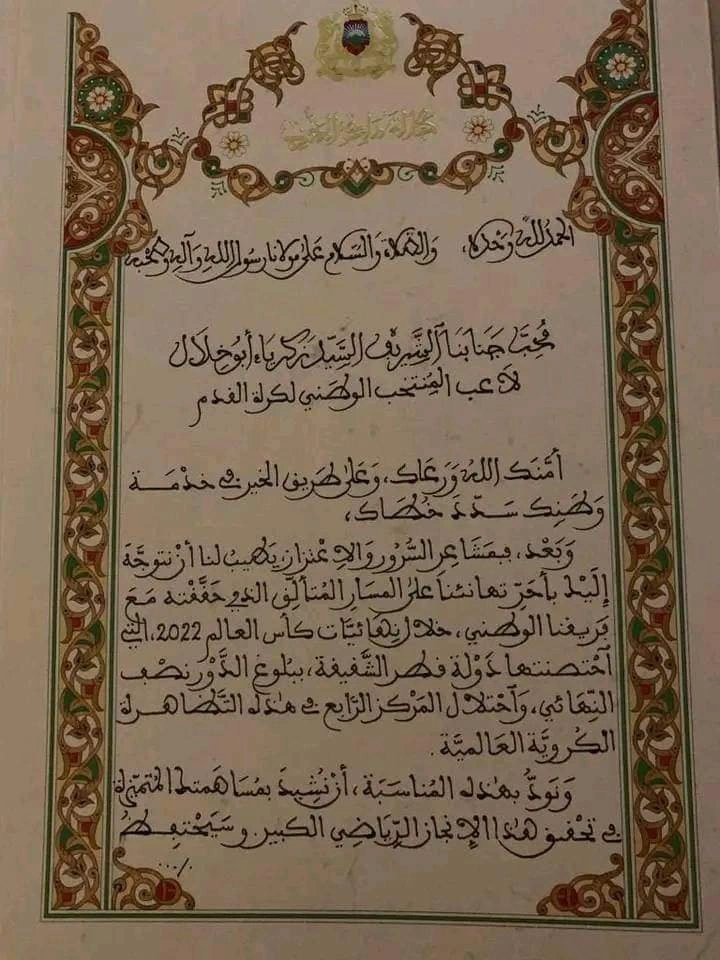 الحمد لله وحده، والصلاة والسلام على مولانا رسول الله وآله وصحبه
محب جنابنا الشريف السيد زكرياء أبو خلال
لاعب المنتخب الوطني لكرة القدم
أمنك الله ورعاك، وعلى طريق الخير في خدمة
وطنك سدد خطاك،
وبعد، فبمشاعر السرور والاعتزاز يطيب لنا أن نتوجه
إليك بأحر تهانئنا على المسار المتألق الذي حققته مع
فريقنا الوطني، خلال نهائيات كأس العالم 2022، التي
احتضنتها دولة قطر الشقيقة، ببلوغ الدور نصف
النهائي، واحتلال المركز الرابع في هذه التظاهرة
الكروية العالمية.
ونود بهذه المناسبة، أن نشيد بمساهمتك المتميزة
في تحقيق هذا الإنجاز الرياضي الكبير وسيحتفظ
./...